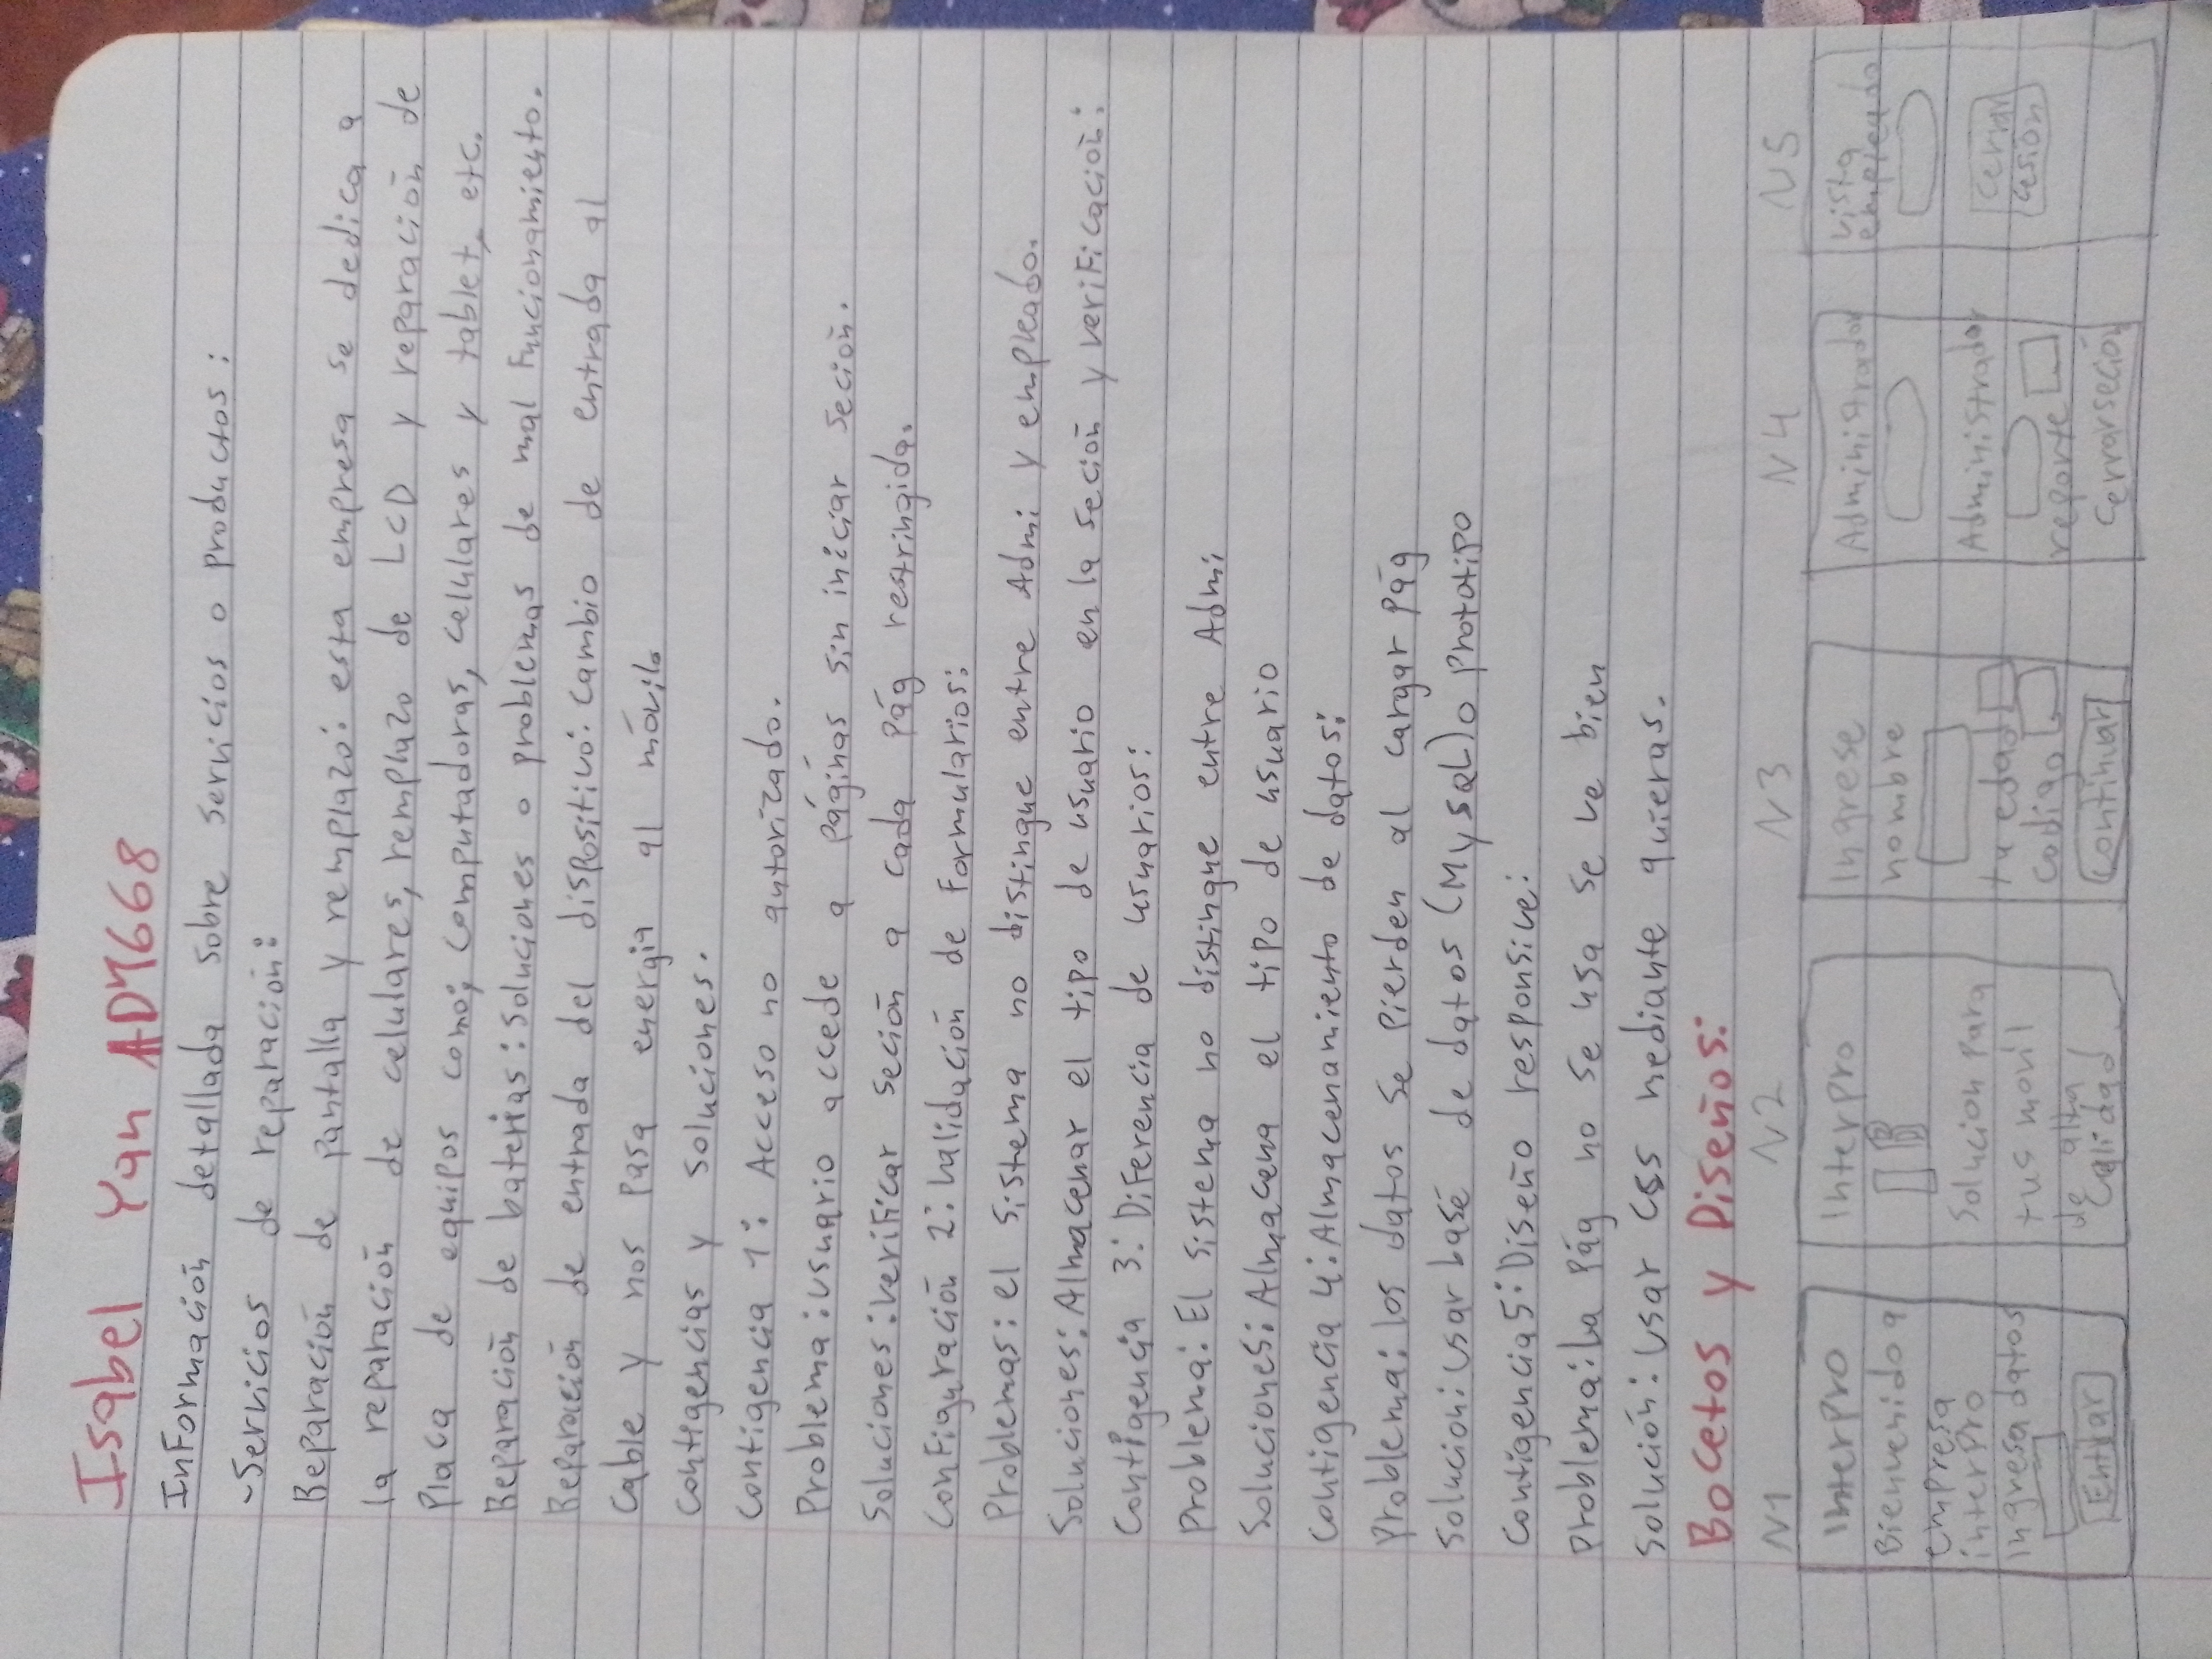 Isabel Yan ADM668
Información detallada sobre servicios o productos:
-Servicios de reparación:
Reparación de pantalla y remplazo: esta empresa se dedica a
la reparación de celulares, remplazo de LCD y reparación de
Placa de equipos como; computadoras, cellulares y tablet, etc.
Reparación de baterias: soluciones o problemas de mal Funcionamiento.
Reparación de entrada del dispositivo: Cambio de entrada al
Cable y nos pasa energia al móvil.
Contigencias y soluciones.
Contigencia 1: Acceso no autorizado.
Problema: usuario accede a páginas sin iniciar Seción.
Soluciones: verificar seción a cada Pág restringida.
Configuración 2: Validación de Formularios:
Problemas: el sistema no distingue entre Admi y empleado.
Soluciones: Almacenar el tipo de usuario en la seción y verificación:
Contigencia 3: Diferencia de usuarios:
Problema: El sistema no distingue entre Admi
Soluciones: Almacena el tipo de usuario
Contigencia 4: Almacenamiento de datos:
Problema: los datos se pierden al cargar Pág
Solucion: Usar base de datos (MySQL) o Prototipo
Contigencia 5: Diseño responsive:
Problema: la Pág no se usa se ve bien
Solución: Usar CSS mediante quieras.
Bocetos y Diseños:
N1 N2 N3 N4 N5
InterPro
Bienvenido a
empresa
interPro
Ingresa datos
Entrar
InterPro
Solucion Para
tus movil
de alta
Calidad
Ingrese
nombre
tu edad
Codigo
Continuar
Administrador
Administrador
reporte
Cerrar seción
Vista
empleado
Cerrar
Cesion